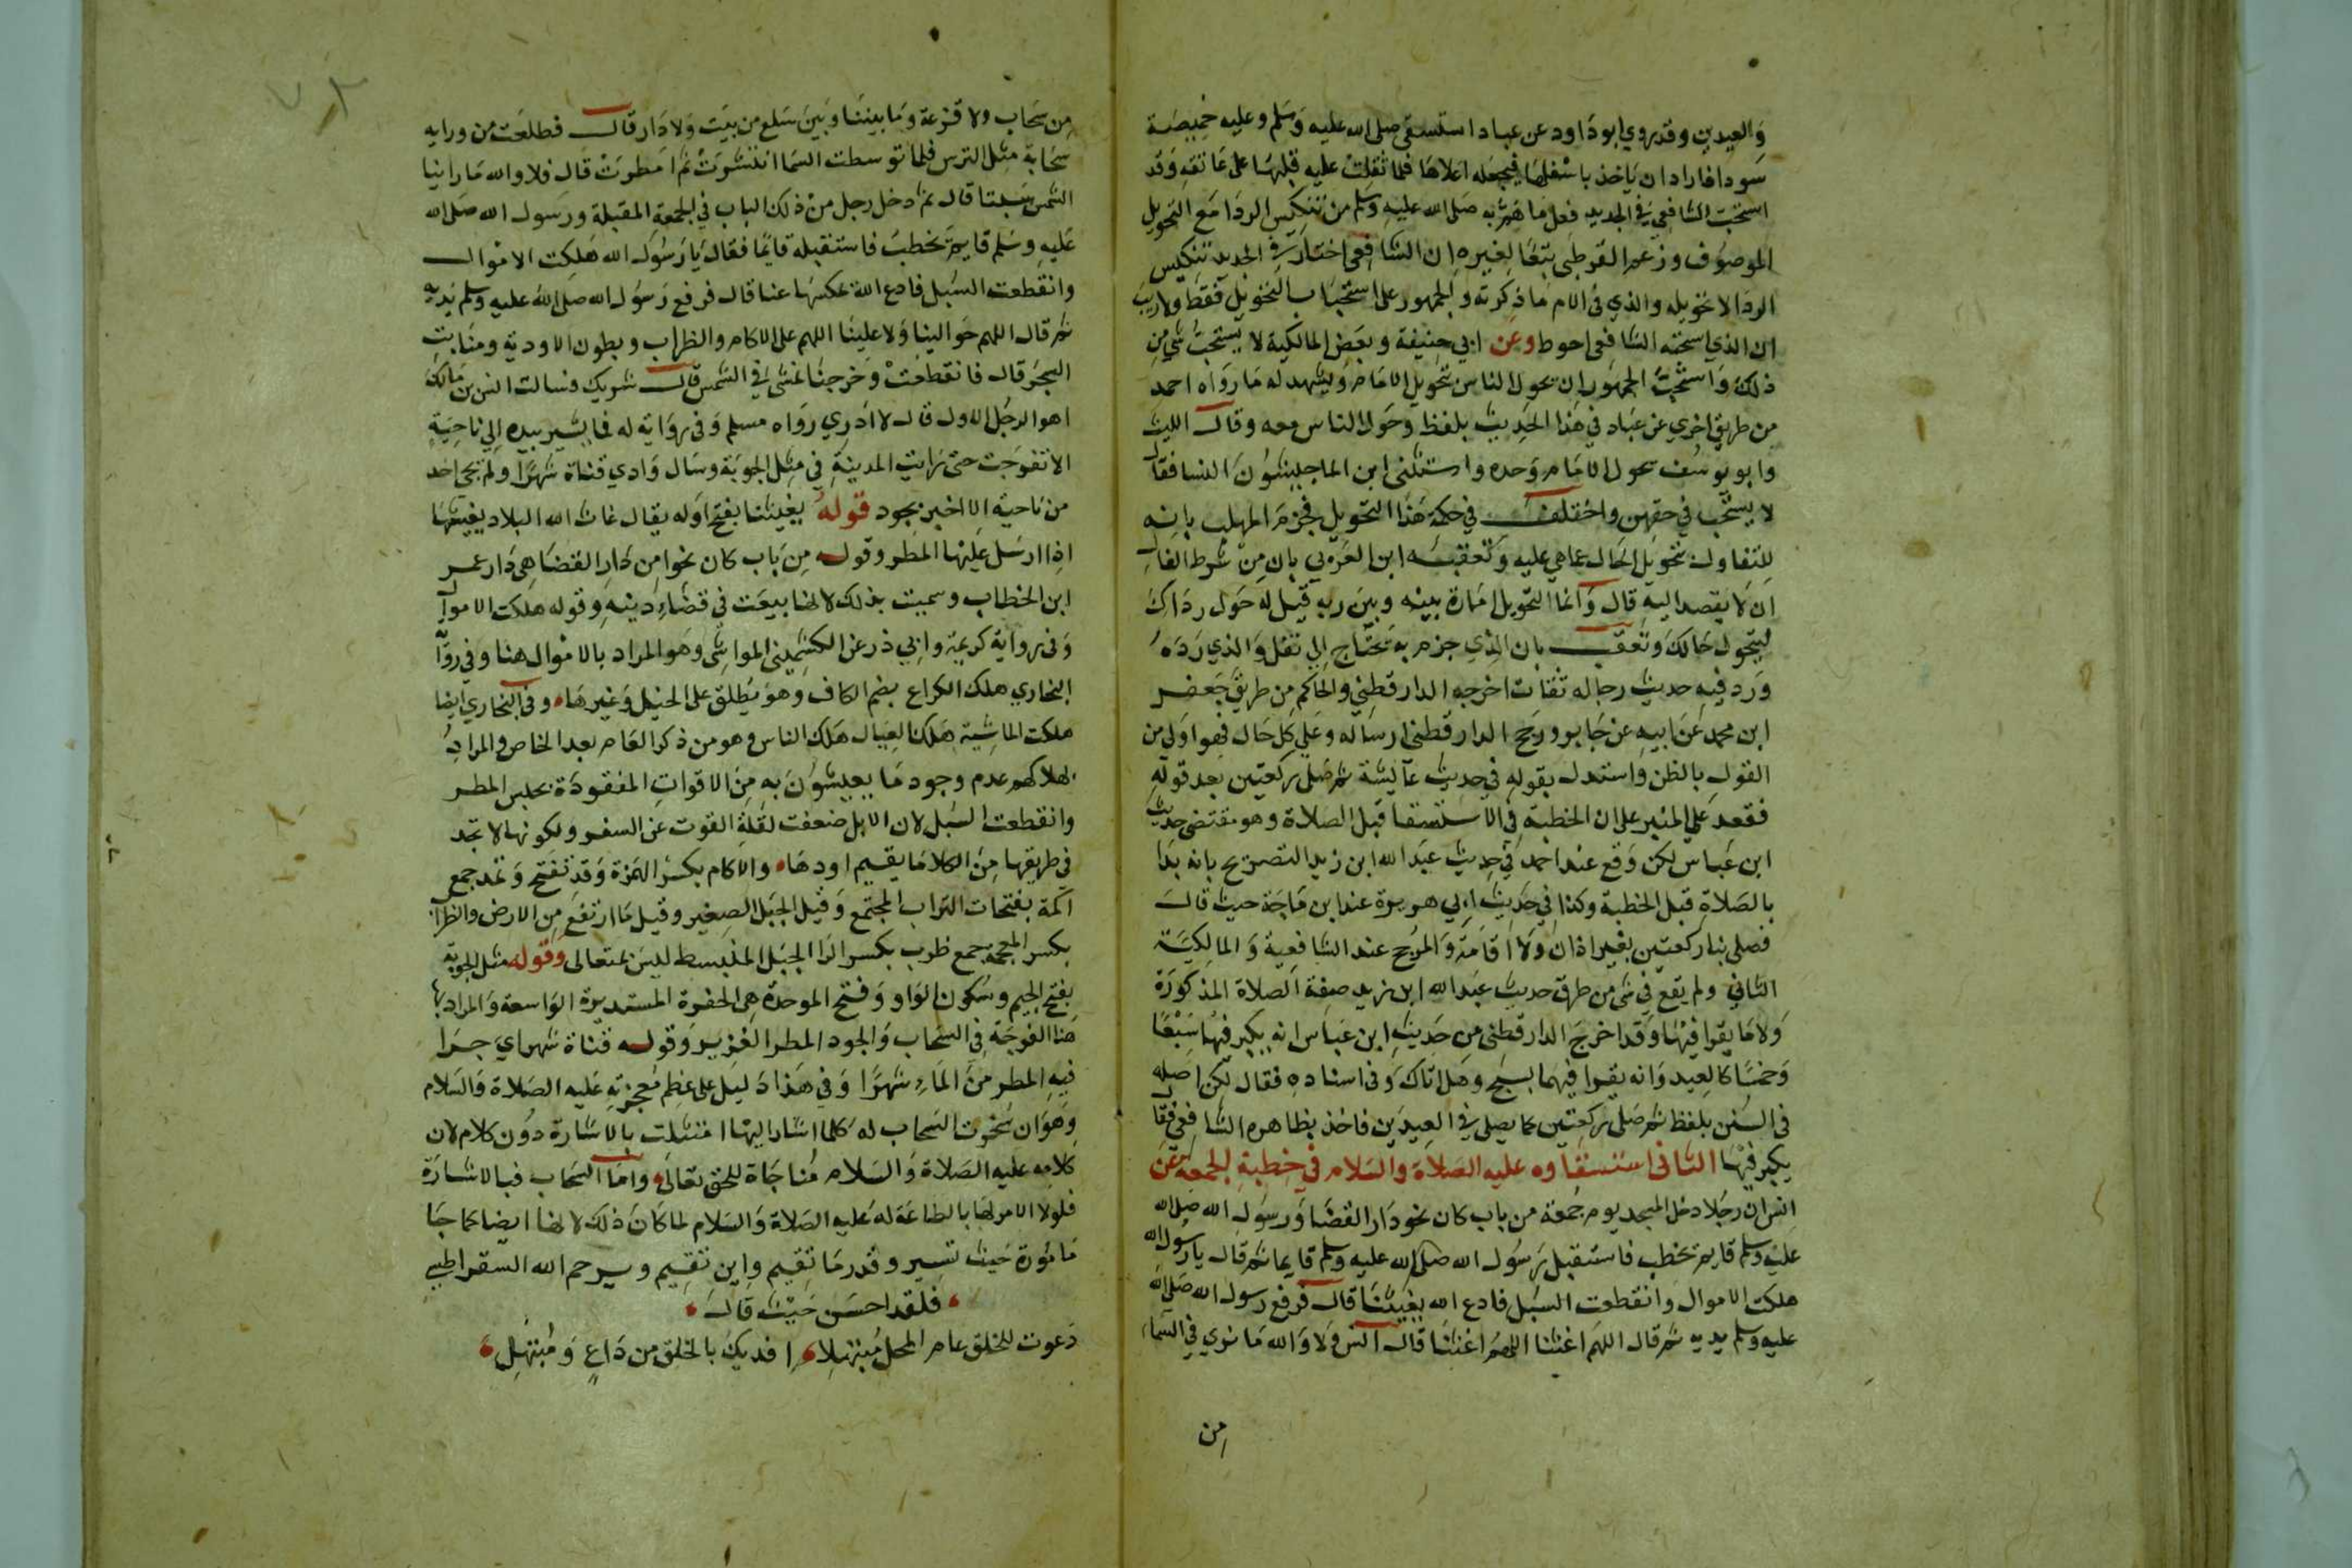 والعيدين وقد روي ابو داود عن عباد استسقى صلى الله عليه وسلم وعليه خميصة
سودا فاراد ان ياخذ باسفلها فيجعله اعلاها فلما ثقلت عليه قلبها على عاتقه وقد
استحب الشافعي في الجديد فعل ما هم به صلى الله عليه وسلم من تنكيس الردا مع التحويل
الموصوف وزعم القرطبي تبعا لغيره ان الشافعي اختار في الجديد تنكيس
الردا لا تحويله والذي في الام ما ذكرته والجمهور على استحباب التحويل فقط ولا ريب
ان الذي استحبه الشافعي احوط وعن ابي حنيفة وبعض المالكية لا يستحب شي من
ذلك واستحب الجمهور ان يحول الناس بتحويل الامام ويشهد له ما رواه احمد
من طريق اخري عن عباد في هذا الحديث بلفظ وحول الناس معه وقال الليث
وابو يوسف يحول الامام وحده واستثنى ابن الماجيشون النسا فقال
لا يستحب في حقهن واختلف في حكمة هذا التحويل فجزم المهلب بانه
للتفاول بتحويل الحال عما هي عليه وتعقبه ابن العربي بان من شرط الفال
ان لا يقصد اليه قال وانما التحويل امارة بينه وبين ربه قيل له حول رداك
ليتحول حالك وتعقب بان الذي جزم به يحتاج الي نقل والذي رده
ورد فيه حديث رجاله ثقات اخرجه الدارقطني والحاكم من طريق جعفر
ابن محمد عن ابيه عن جابر ورجح الدارقطني ارساله وعلي كل حال فهو اولي من
القول بالظن واستدل بقوله في حديث عايشة ثم صلى ركعتين بعد قوله
فقعد علي المنبر على ان الخطبة في الاستسقا قبل الصلاة وهو مقتضى حديث
ابن عباس لكن وقع عند احمد في حديث عبد الله ابن زيد التصريح بانه بدا
بالصلاة قبل الخطبة وكذا في حديث ابي هريرة عند ابن ماجة حيث قال
فصلى بنا ركعتين بغير اذان ولا اقامة والمرجح عند الشافعية والمالكية
الثاني ولم يقع في شي من طرق حديث عبد الله ابن زيد صفة الصلاة المذكورة
ولا ما يقرا فيها وقد اخرج الدارقطني من حديث ابن عباس انه يكبر فيها سبعا
وخمسا كالعيد وانه يقرا فيهما بسبح وهل اتاك وفي اسناده فقال لكن اصله
في السنن بلفظ ثم صلى ركعتين كما يصلي في العيدين فاخذ بظاهره الشافعي فقال
يكبر فيها الثاني استسقاوه عليه الصلاة والسلام في خطبة الجمعة عن
انس ان رجلا دخل المسجد يوم جمعة من باب كان نحو دار القضا ورسول الله صلى الله
عليه وسلم قايم يخطب فاستقبل رسول الله صلى الله عليه وسلم قايما ثم قال يا رسول الله
هلكت الاموال وانقطعت السبل فادع الله يغيثنا قال فرفع رسول الله صلى الله
عليه وسلم يديه ثم قال اللهم اغثنا اللهم اغثنا قال انس ولا والله ما نري في السماء
من
من سحاب ولا قزعة وما بيننا وبين سلع من بيت ولا دار قال فطلعت من ورايه
سحابة مثل الترس فلما توسطت السما انتشرت ثم امطرت قال فلا والله ما راينا
الشمس سبتا قال ثم دخل رجل من ذلك الباب في الجمعة المقبلة ورسول الله صلى الله
عليه وسلم قايم يخطب فاستقبله قايما فقال يا رسول الله هلكت الاموال
وانقطعت السبل فادع الله يمسكها عنا قال فرفع رسول الله صلى الله عليه وسلم يديه
ثم قال اللهم حوالينا ولا علينا اللهم على الاكام والظراب وبطون الاودية ومنابت
الشجر قال فانقطعت وخرجنا نمشي في الشمس قال شريك فسالت انس بن مالك
اهو الرجل الاول قال لا ادري رواه مسلم وفي رواية له فما يشير بيده الي ناحية
الا تفرجت حتى رايت المدينة في مثل الجوبة وسال وادي قناة شهرا ولم يجئ احد
من ناحية الا اخبر بجود قوله يغيثنا بفتح اوله يقال غاث الله البلاد يغيثها
اذا ارسل عليها المطر وقوله من باب كان نحوا من دار القضا هي دار عمر
ابن الخطاب وسميت بذلك لانها بيعت في قضاء دينه وقوله هلكت الاموال
وفي رواية كريمة وابي ذر عن الكشميهني المواشي وهو المراد بالاموال هنا وفي رواية
البخاري هلك الكراع بضم الكاف وهو يطلق على الخيل وغيرها وفي البخاري ايضا
هلكت الماشية هلك العيال هلك الناس وهو من ذكر العام بعد الخاص والمراد
بهلاكهم عدم وجود ما يعيشون به من الاقوات المفقودة بحبس المطر
وانقطعت السبل لان الابل ضعفت لقلة القوت عن السفر ولكونها لا تجد
في طريقها من الكلا ما يقيم اودها والاكام بكسر الهمزة وقد تفتح وتمد جمع
اكمة بفتحات التراب المجتمع وقيل الجبل الصغير وقيل ما ارتفع من الارض والظراب
بكسر المعجمة جمع ظرب بكسر الرا الجبل المنبسط ليس بمتعالى وقوله مثل الجوبة
بفتح الجيم وسكون الواو وفتح الموحدة هي الحفرة المستديرة الواسعة والمراد بها
هنا الفرجة في السحاب والجود المطر الغزير وقوله قناة شهرا اي جرا
فيه المطر من الماء شهرا وفي هذا دليل على عظم معجزته عليه الصلاة والسلام
وهو ان سخرت السحاب له كلما اشار اليها امتثلت بالاشارة دون كلام لان
كلامه عليه الصلاة والسلام مناجاة للحق تعالى واما السحاب فبالاشارة
فلولا الامر لها بالطاعة له عليه الصلاة والسلام لما كان ذلك لانها ايضا كما جا
مامورة حيث تسير وقدر ما تقيم واين تقيم ويرحم الله السقراطسي
فلقد احسن حيث قال
دعوت للخلق عام المحل مبتهلا افديك بالخلق من داع ومبتهل